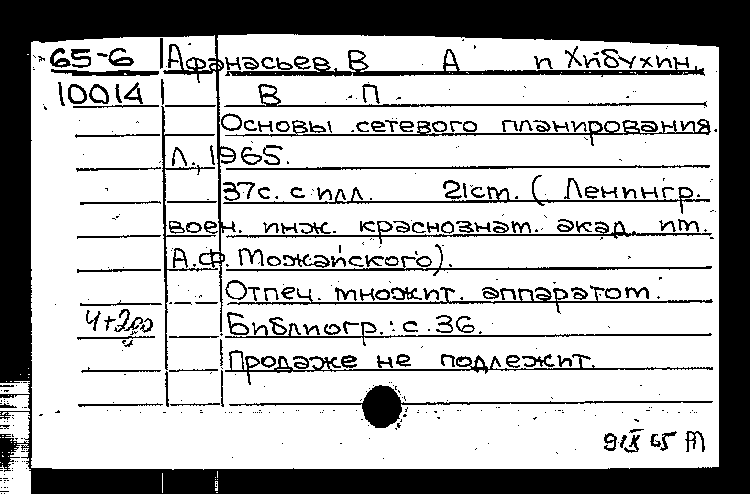 65-6 Афанасьев, В А и Хибухин,
10014 В П.
Основы сетевого планирования.
Л., 1965.
37с. с илл. 21см. (Ленингр.
воен. инж. краснознам. акад. им.
А.Ф. Можайского).
Отпеч. множит. аппаратом.
4+2до Библиогр.: с. 36.
Продаже не подлежит.